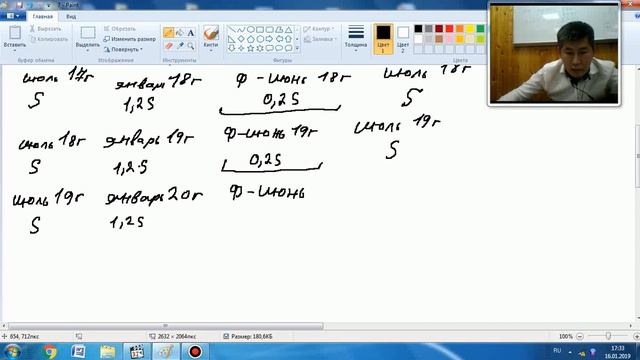 7 - Paint
Главная Вид
Вставить Вырезать Копировать Выделить Обрезать Изменить размер Повернуть Кисти Фигуры Контур Заливка Толщина Цвет 1 Цвет 2
Буфер обмена Изображение Инструменты Фигуры
июль 17г январь 18г ф - июнь 18г июль 18г
S 1,2S 0,2S S
июль 18г январь 19г ф-июнь 19г июль 19г
S 1,2S 0,2S S
июль 19г январь 20г ф-июнь
S 1,2S
654, 712пкс 2632 × 2064пкс Размер: 180,6КБ 100%
RU 17:33
16.01.2019